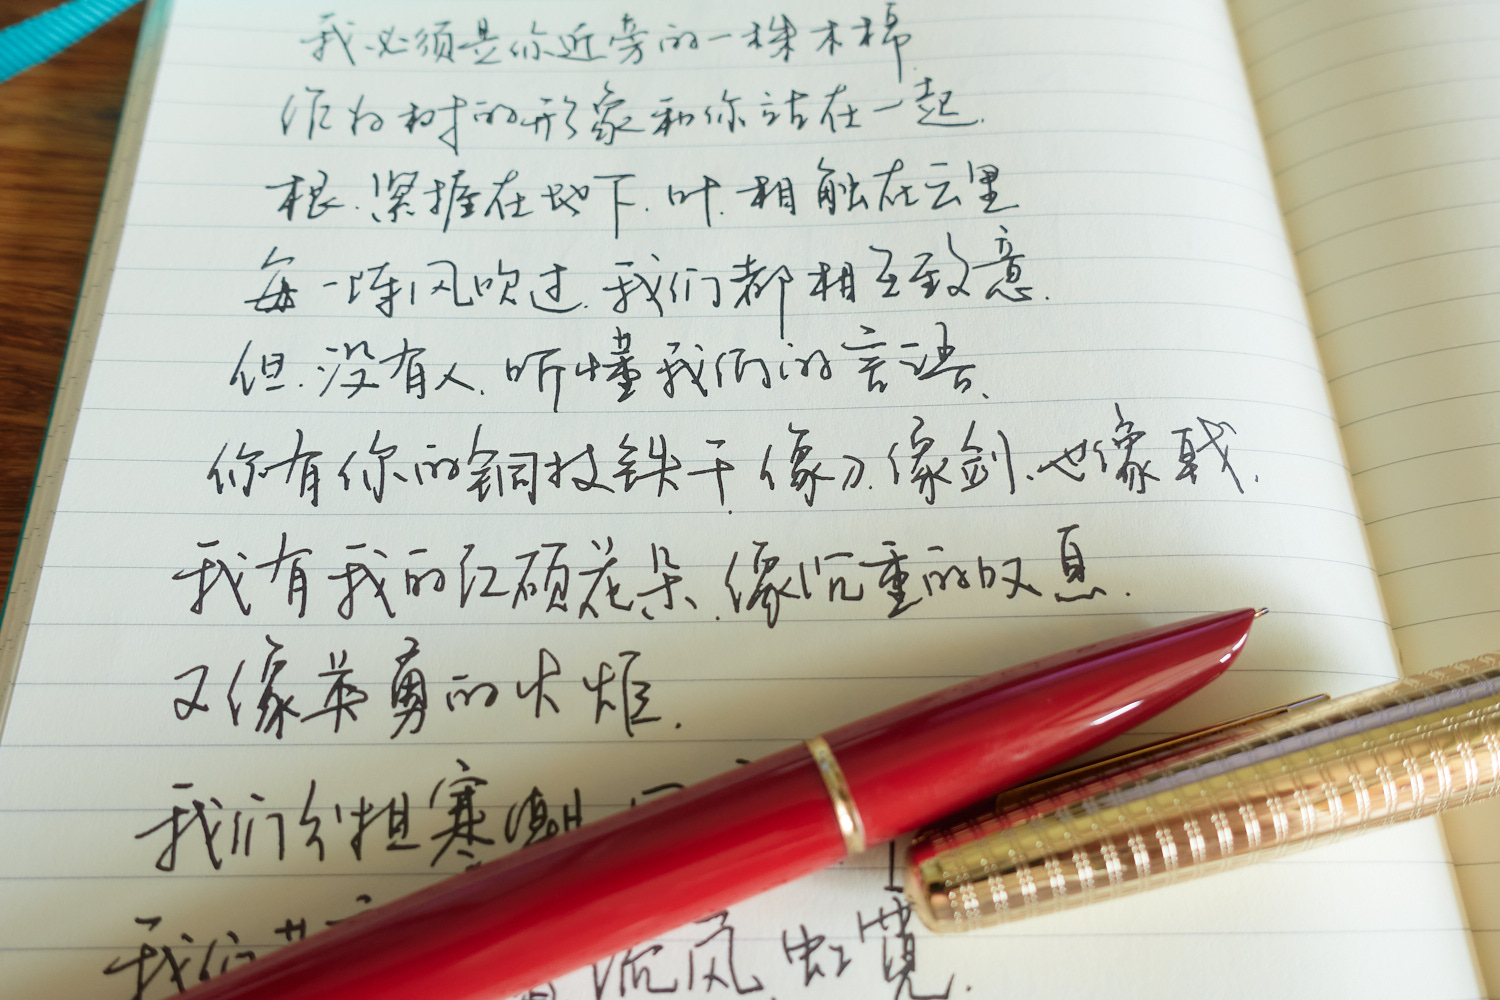 我必须是你近旁的一株木棉
作为树的形象和你站在一起.
根.深握在地下.叶.相触在云里
每一阵风吹过.我们都相互致意.
但.没有人.听懂我们的言语.
你有你的铜枝铁干.像刀.像剑.也像戟.
我有我的红硕花朵.像沉重的叹息.
又像英勇的火炬.
我们分担寒潮
我们 流岚.虹霓.